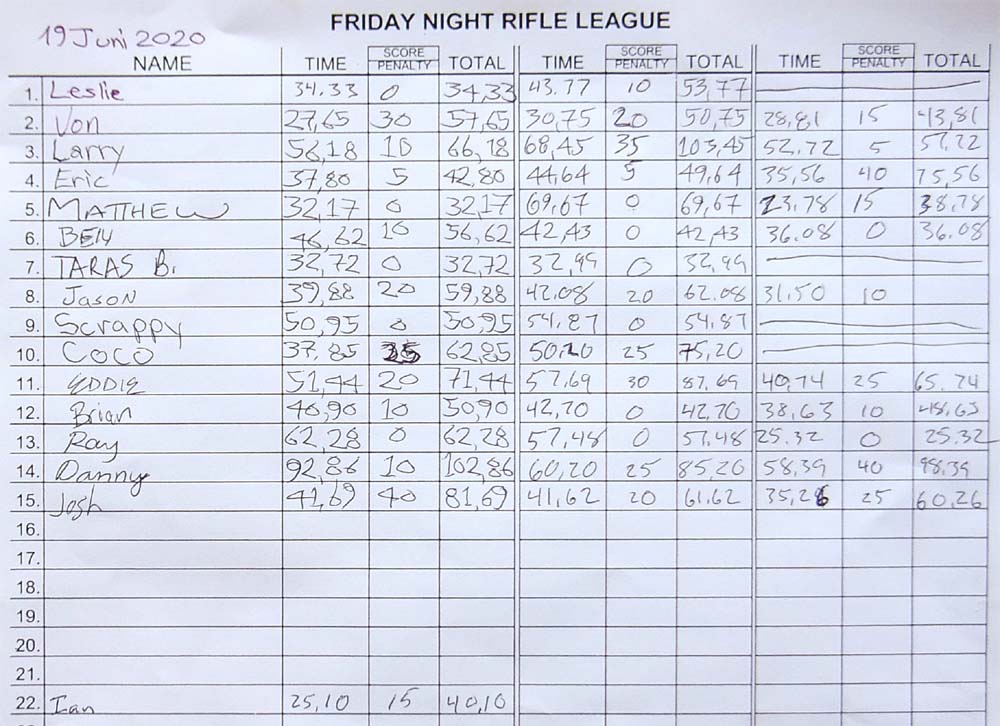 FRIDAY NIGHT RIFLE LEAGUE
19 Juni 2020
NAME TIME SCORE PENALTY TOTAL TIME SCORE PENALTY TOTAL TIME SCORE PENALTY TOTAL
1. Leslie 34,33 0 34,33 43.77 10 53,77
2. Von 27,65 30 57,65 30,75 20 50,75 28,81 15 43,81
3. Larry 56,18 10 66,18 68,45 35 103,45 52.72 5 57,72
4. Eric 37,80 5 42,80 44,64 5 49,64 35,56 40 75,56
5. MATTHEW 32,17 0 32,17 69,67 0 69,67 23.78 15 38,78
6. BEN 46,62 10 56,62 42,43 0 42,43 36.08 0 36.08
7. TARAS B. 32,72 0 32,72 32,99 0 32,99
8. Jason 39,88 20 59,88 42.08 20 62.08 31,50 10
9. Scrappy 50,95 0 50,95 54,87 0 54,87
10. Coco 37,85 62,85 50,20 25 75,20
11. EDDIE 51,44 20 71,44 57,69 30 87,69 40,74 25 65,74
12. Brian 40,90 10 50,90 42,70 0 42,70 38,63 10 48,63
13. Ray 62,28 0 62,28 57,48 0 57,48 25.32 0 25.32
14. Danny 92,86 10 102,86 60,20 25 85,20 58,39 40 98,39
15. Josh 41,69 40 81,69 41,62 20 61,62 35,26 25 60,26
16.
17.
18.
19.
20.
21.
22. Ian 25,10 15 40,10